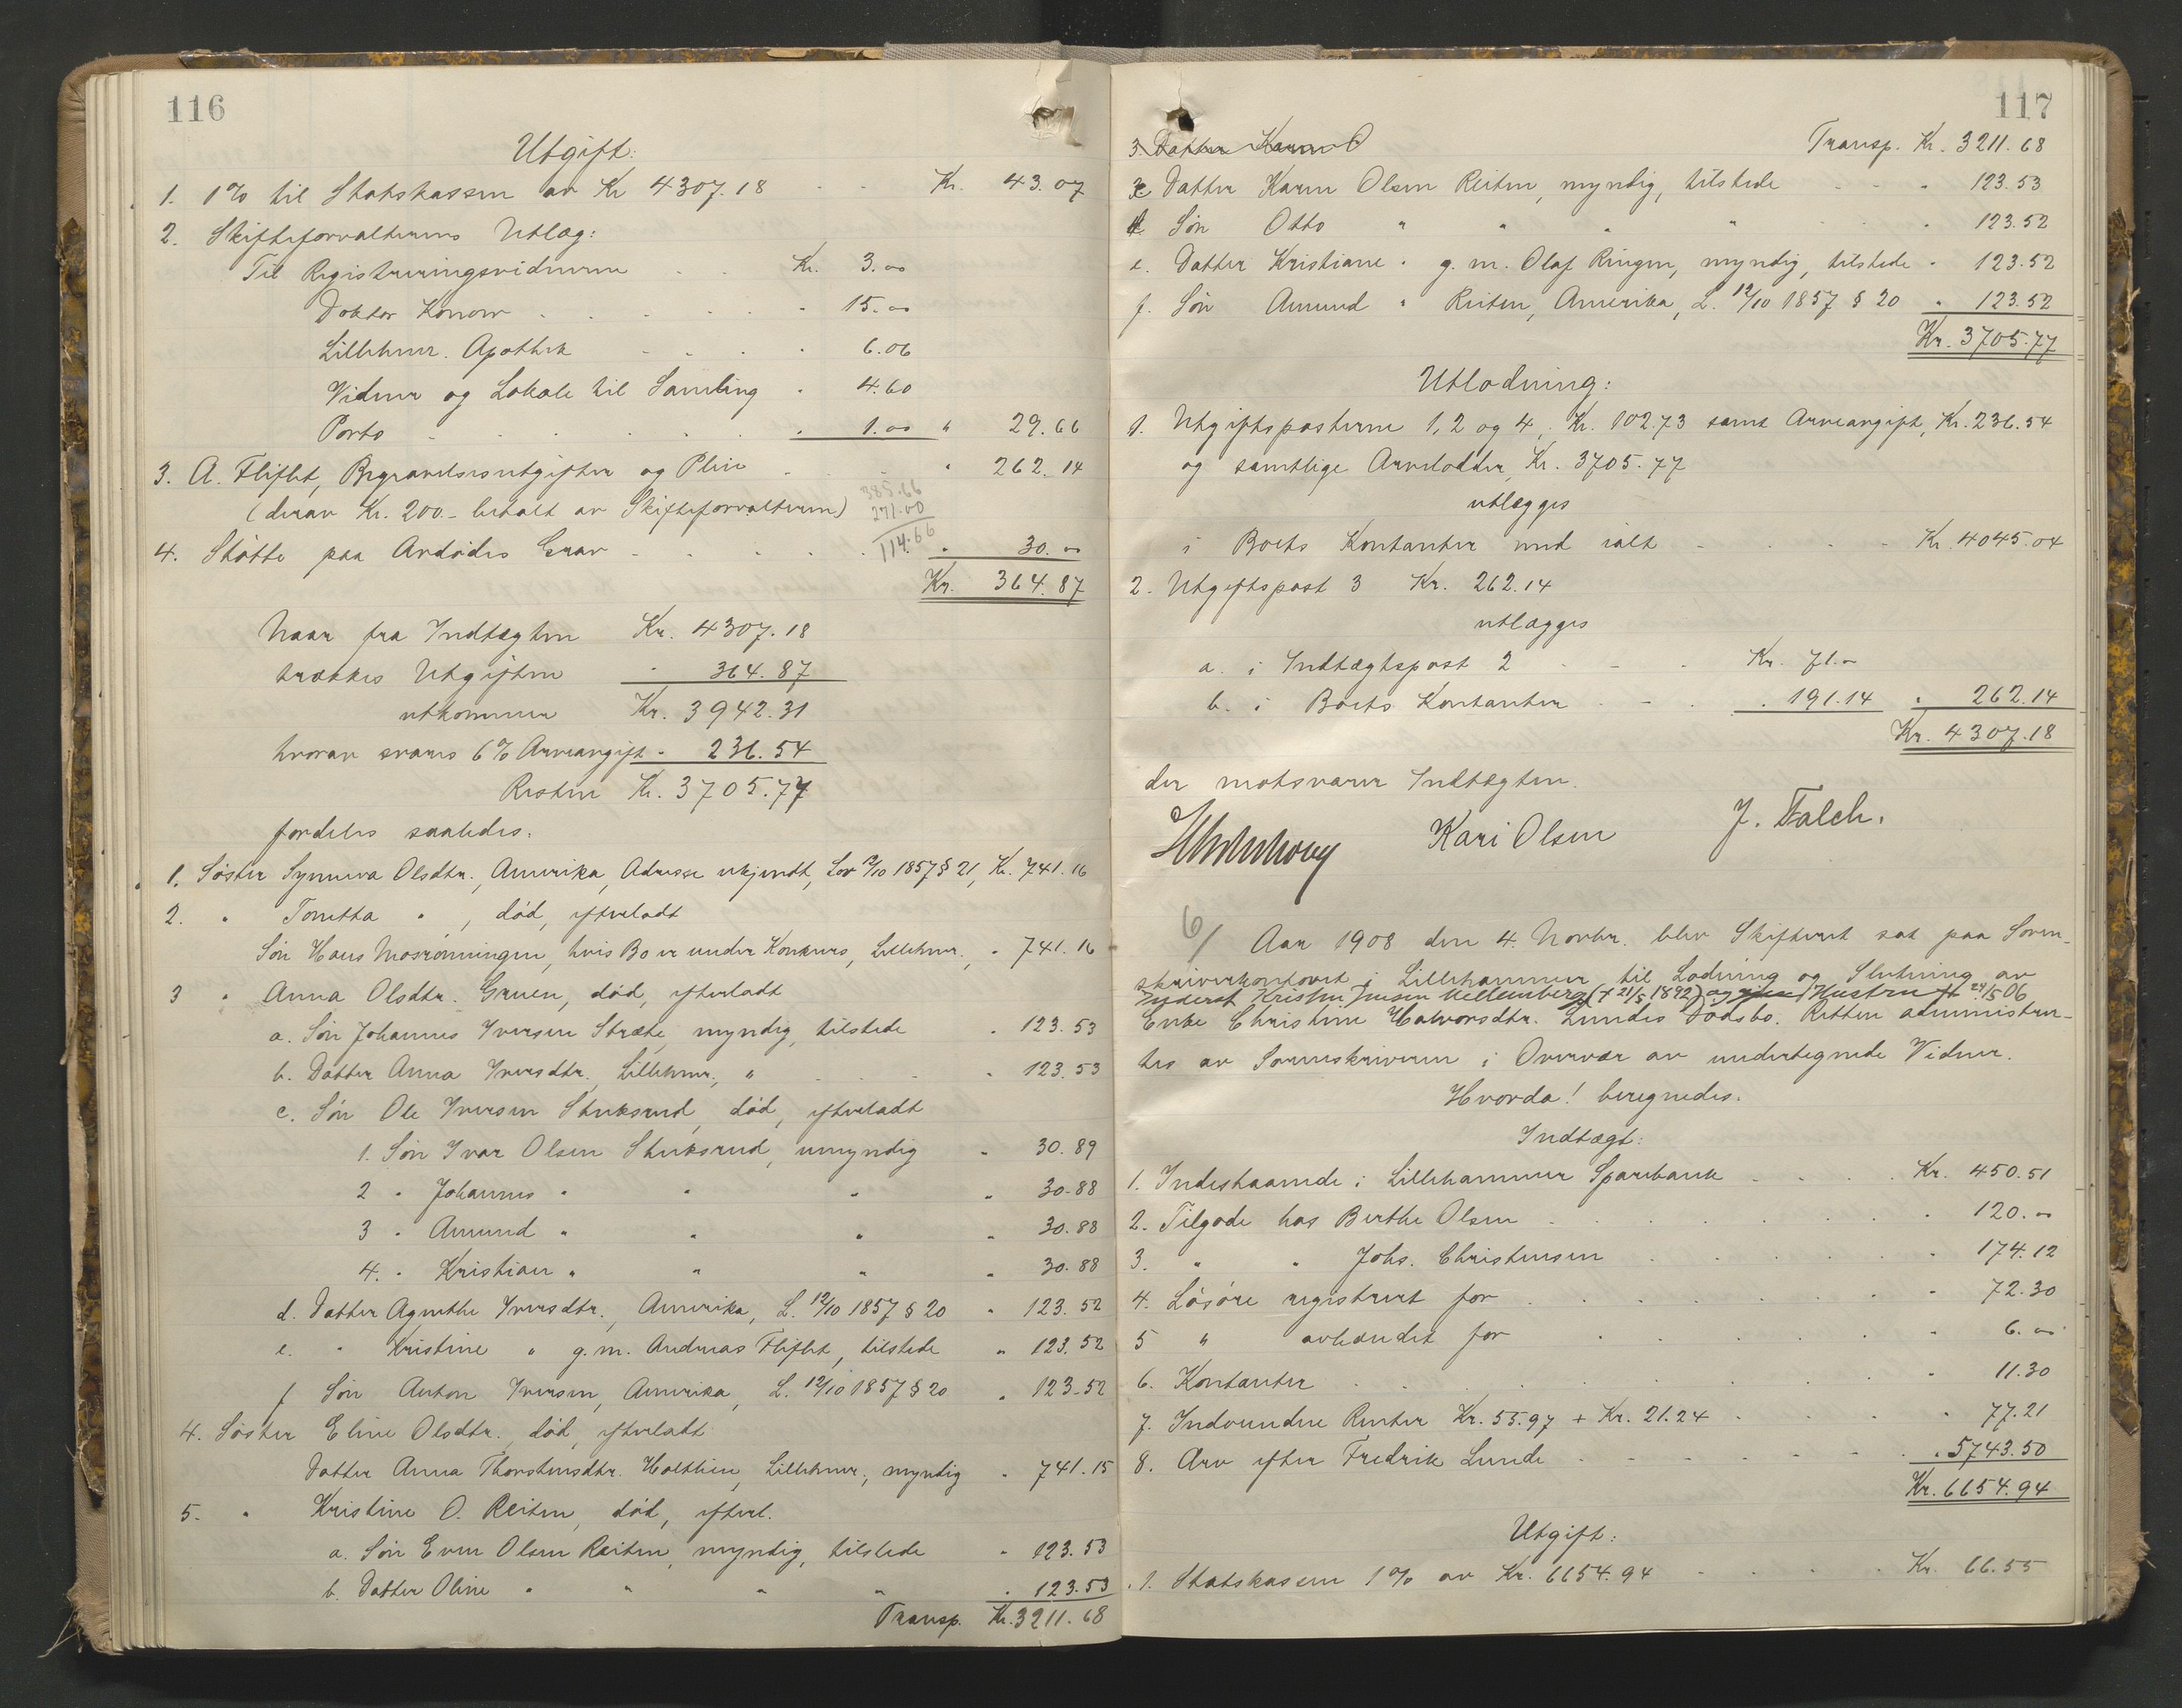 116
Utgift:
1. 1% til Statskassen av Kr 4307.18 Kr. 43.07
2. Skifteforvalterens Utlæg:
Til Registreringsvidnerne Kr. 3.00
Doktor Konow 15.00
Lillehmr. Apothek 6.06
Vidner og Lokale til Samling 4.60
Porto 1.00 " 29.66
3. A. Fliflet, Begravelsesutgifter og Pleie " 262.14
(derav Kr. 200.- betalt av Skifteforvalteren)
385.66
271.00
114.66
4. Støtte paa Avdødes Grav " 30.00
Kr. 364.87
Naar fra Indtægten Kr. 4307.18
trækkes Utgiften " 364.87
utkommer Kr. 3942.31
hvorav svares 6% Arveavgift " 236.54
Resten Kr. 3705.77
fordeles saaledes:
1. Søster Synneva Olsdtr., Amerika, Adresse ukjendt, Lov 12/10 1857 § 21, Kr. 741.16
2. " Tonetta " , død, efterladt
Søn Hans Mosrønningen, hvis Bo er under Konkurs, Lillehmr., " 741.16
3 " Anna Olsdtr. Gruen, død, efterladt
a. Søn Johannes Iversen Stræte, myndig, tilstede " 123.53
b. Datter Anna Iversdtr., Lillehmr., " " 123.53
c. Søn Ole Iversen Stuksrud, død, efterladt
1. Søn Ivar Olsen Stuksrud, umyndig " 30.89
2 " Johannes " " " " 30.88
3 " Amund " " " " 30.88
4. " Kristian " " " " 30.88
d. Datter Agnethe Iversdtr., Amerika, L. 12/10 1857 § 20 " 123.52
e. " Kristine " g.m. Andreas Fliflet, tilstede " 123.52
f Søn Anton Iversen, Amerika, L. 12/10 1857 § 20 " 123.52
4. Søster Eline Olsdtr., død, efterladt
Datter Anna Thorstensdtr. Holthien, Lillehmr., myndig " 741.15
5. " Kristine O. Reiten, død, efterl.
a. Søn Even Olsen Reiten, myndig, tilstede " 123.53
b. Datter Oline " " " " " 123.53
Transp. Kr. 3211.68
117
3 Datter Karen O Transp. Kr. 3211.68
c Datter Karen Olsen Reiten, myndig, tilstede " 123.53
d. Søn Otto " " " " " 123.52
e. Datter Kristiane " g.m. Olaf Ringen, myndig, tilstede " 123.52
f. Søn Amund " Reiten, Amerika, L. 12/10 1857 § 20 " 123.52
Kr. 3705.77
Utlodning:
1. Utgiftsposterne 1, 2 og 4, Kr. 102.73 samt Arveavgift, Kr. 236.54
og samtlige Arvelodder, Kr. 3705.77
utlægges
i Boets Kontanter med ialt Kr. 4045.04
2. Utgiftspost 3 Kr. 262.14
utlægges
a. i Indtægtspost 2 Kr. 71.00
b. i Boets Kontanter " 191.14 " 262.14
Kr. 4307.18
der motsvarer Indtægten.
Kari Olsen J. Falch.
6/ Aar 1908 den 4. Novbr. blev Skifteret sat paa Soren-
skriverkontoret i Lillehammer til Lodning og Slutning av
Kristen Jensen († 21/5 1892) og Hustru † 24/5 06
Enke Christine Halvorsdtr. Lundes Dødsbo. Retten administrer-
tes av Sorenskriveren i Overvær av undertegnede Vidner.
Hvorda! beregnedes.
Indtægt:
1. Indestaaende i Lillehammer Sparebank Kr. 450.51
2. Tilgode hos Berthe Olsen " 120.00
3. " " Johs. Christensen " 174.12
4. Løsøre registrert for " 72.30
5 " avhændet for " 6.00
6. Kontanter " 11.30
7. Indvundne Renter Kr. 55.97 + Kr. 21.24 " 77.21
8. Arv efter Fredrik Lunde " 5743.50
Kr. 6654.94
Utgift:
1. Statskassen 1% av Kr. 6654.94 Kr. 66.55